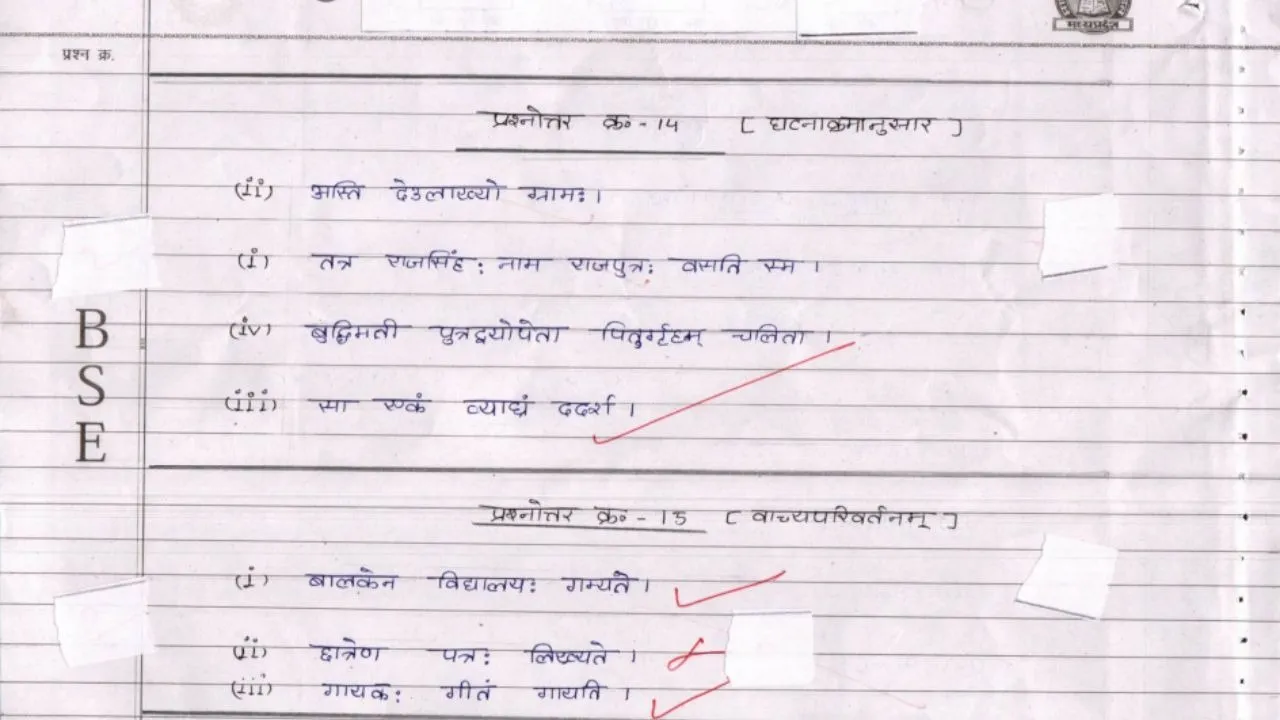 मध्यप्रदेश
प्रश्न क्र.
प्रश्नोत्तर क्र० - 14 [ घटनाक्रमानुसार ]
(ii) अस्ति देउलाख्यो ग्रामः ।
(i) तत्र राजसिंहः नाम राजपुत्रः वसति स्म ।
(iv) बुद्धिमती पुत्रद्वयोपेता पितुर्गृहम् चलिता ।
(iii) सा एकं व्याघ्रं ददर्श ।
B
S
E
प्रश्नोत्तर क्र० - 15 [ वाच्यपरिवर्तनम् ]
(i) बालकेन विद्यालयः गम्यते ।
(ii) छात्रेण पत्रः लिख्यते ।
(iii) गायकः गीतं गायति ।